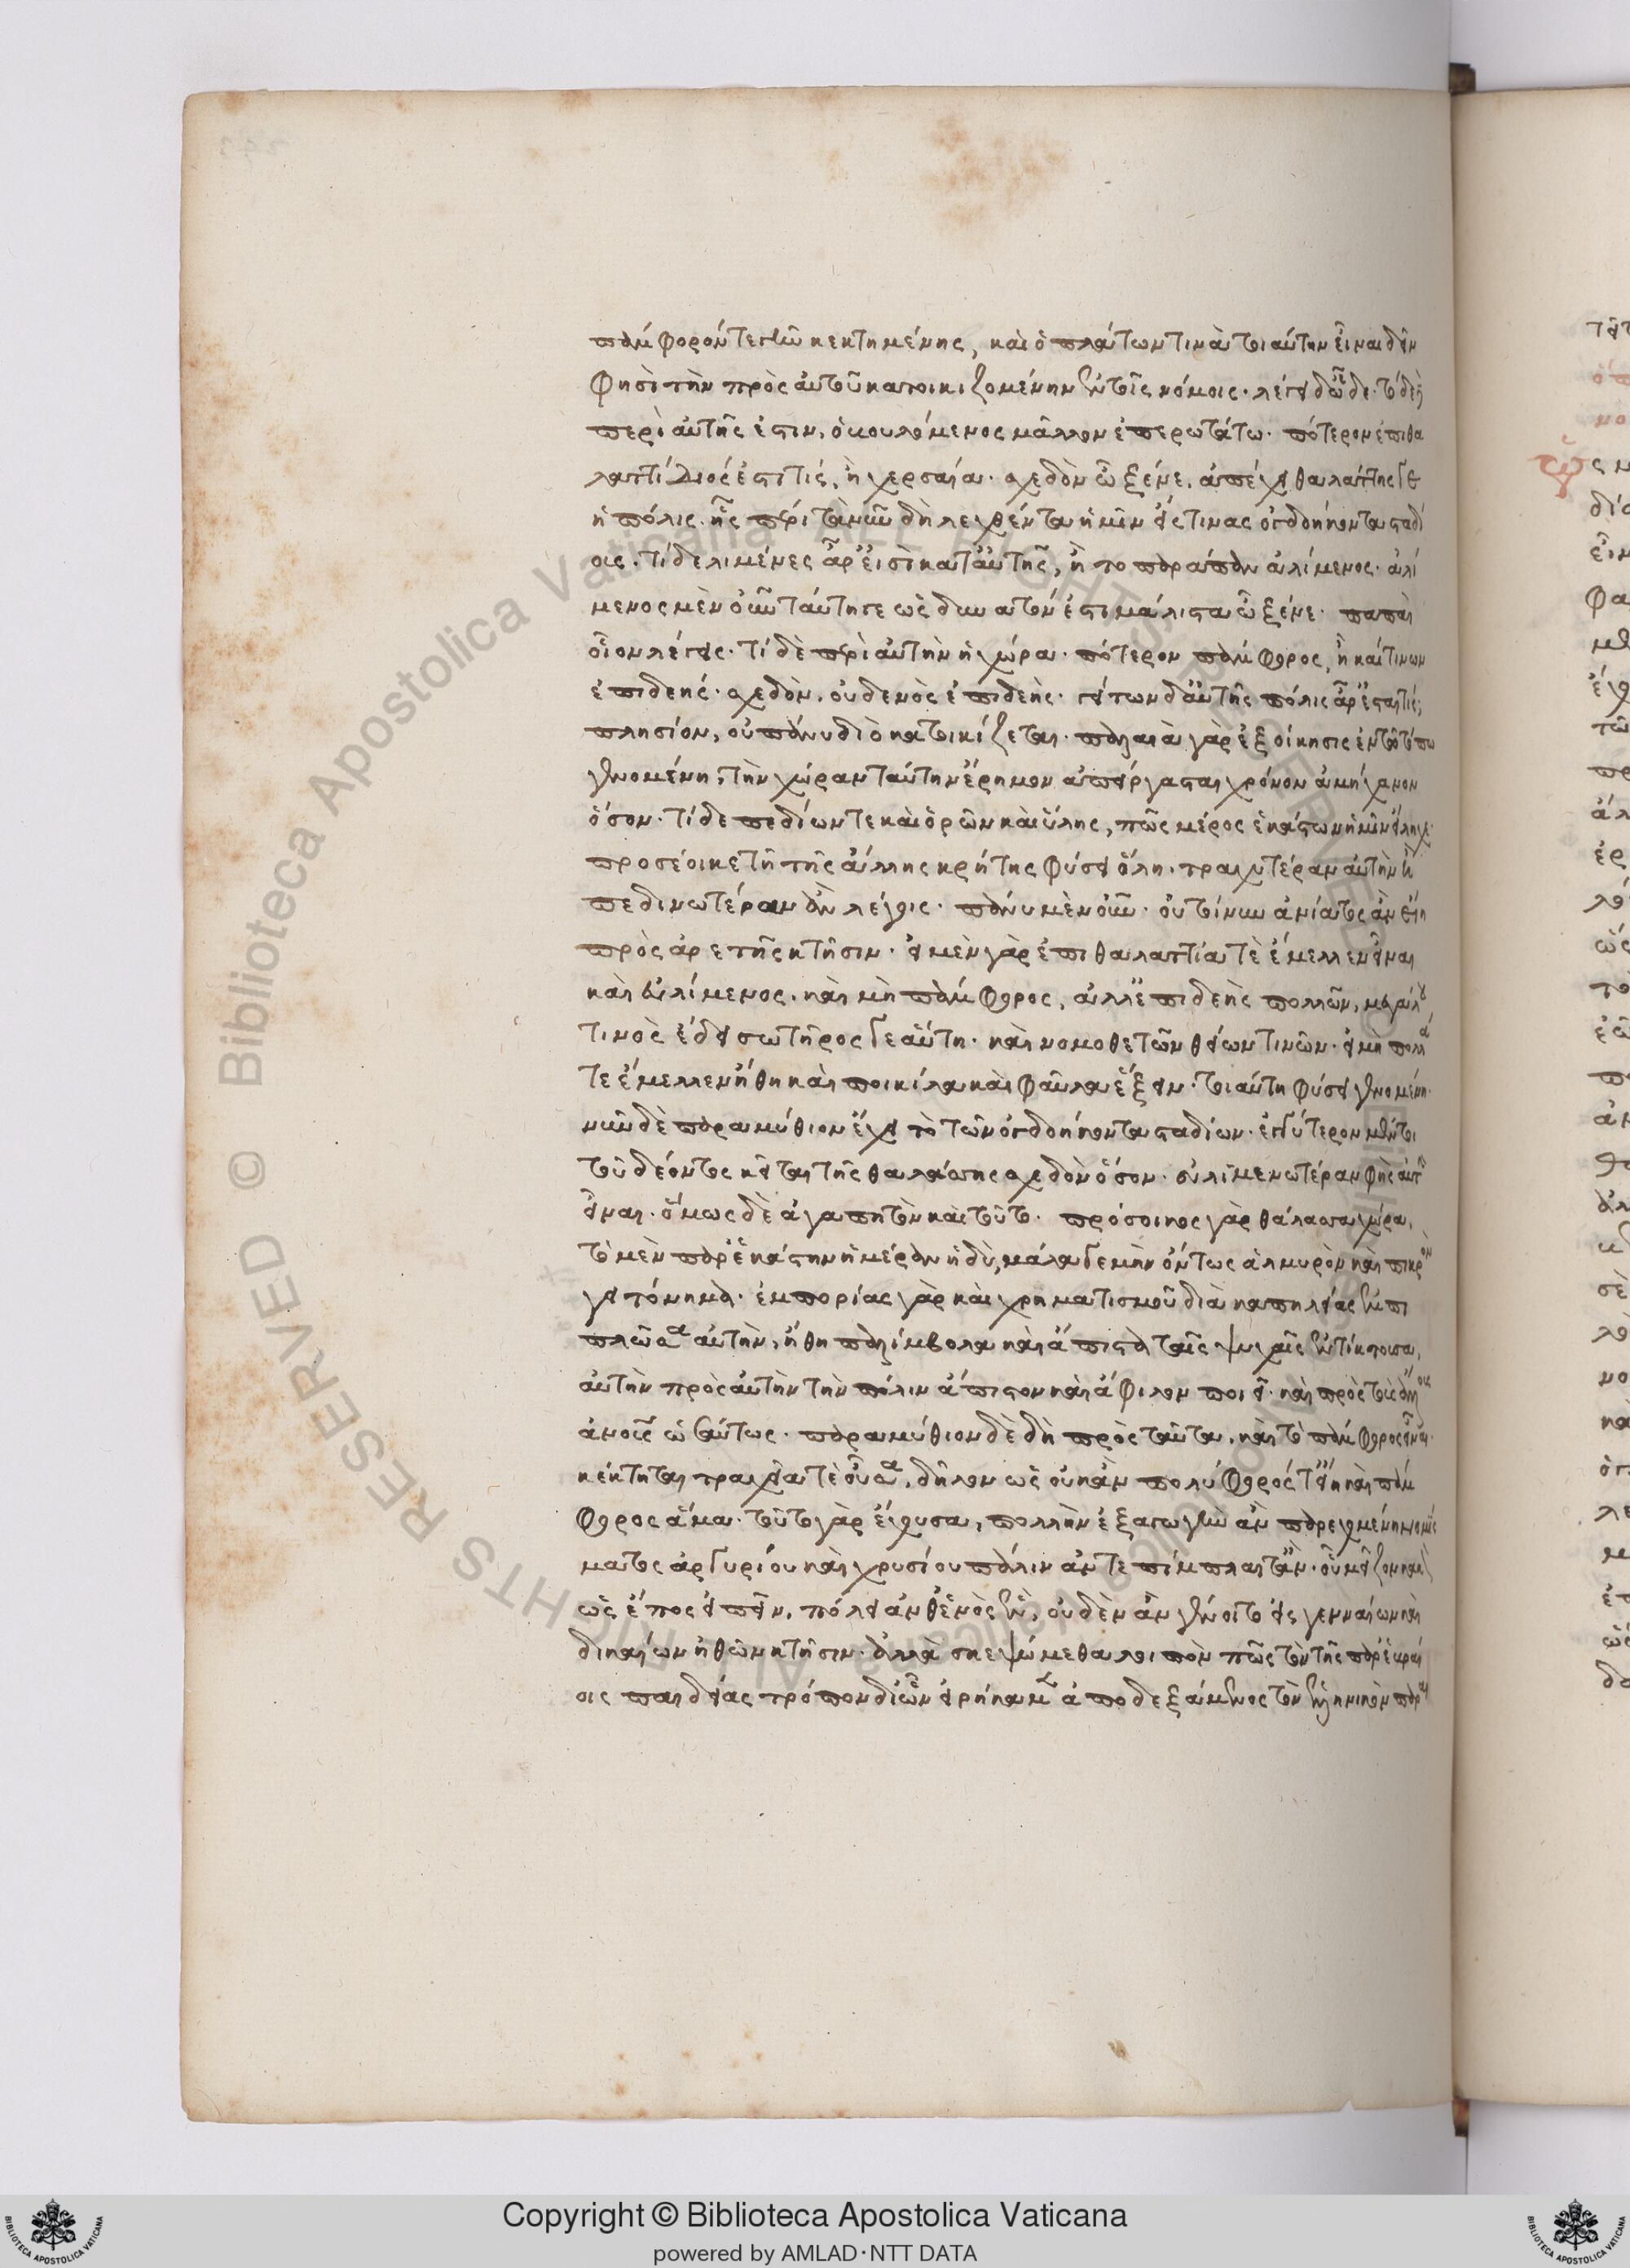 πάμφορόν τε γῆν κεκτημένης, καὶ ὁ πλάτων τινὰ τοιαύτην εἶναι δεῖν
φησὶ τὴν πρὸς αὐτοῦ κατοικιζομένην ἐν τοῖς νόμοις. λέγει δ' ὧδε. τόδε
περὶ αὐτῆς ἐστιν, ὁ βουλόμενος μᾶλλον ἐπερωτάτω. πότερον ἐπιθα
λαττίδιος ἐστί τις, ἢ χερσαία. σχεδὸν ὦ ξένε, ἀπέχει θαλάττης γε
ἡ πόλις. ἧς πέρι τανῦν δὴ λεχθέντα ἡμῖν εἴς τινας ὀγδοήκοντα σταδί
ους. τί δὲ λιμένες ἆρ' εἰσὶ κατ' αὐτῆς, ἢ το παράπαν ἀλίμενος. ἀλί
μενος μὲν οὖν ταύτῃ γε ὡς δυνατόν ἐστι μάλιστα ὦ ξένε. παπαὶ
οἷον λέγεις. τί δὲ περὶ αὐτὴν ἡ χώρα. πότερον πάμφορος, ἢ καί τινων
ἐπιδεής. σχεδὸν, οὐδενὸς ἐπιδεής. γείτων δ' αὐτῆς πόλις ἆρ' ἔσται τίς;
πλησίον, οὐ πάνυ διὸ κατοικίζεται. παλαιὰ γὰρ ἐξοίκησις ἐν τῶ τόπω
γενομένη, τὴν χώραν ταύτην ἔρημον ἀπείργασται χρόνον ἀμήχανον
ὅσον. τί δε πεδίων τε καὶ ὀρῶν καὶ ὕλης, πῶς μέρος ἑκάστων ἡμῖν εἴληχε.
προσέοικε τῆ τῆς ἄλλης κρήτης φύσει ὅλη. τραχυτέραν αὐτὴν ἢ
πεδινωτέραν ἂν λέγοις. πάνυ μὲν οὖν. οὐ τοίνυν ἀνίατος ἂν εἴη
πρὸς ἀρετῆς κτῆσιν. εἰ μὲν γὰρ ἐπιθαλαττία τὲ ἔμελλεν εἶναι
καὶ εὐλίμενος. καὶ μὴ πάμφορος, ἀλλ' ἐπιδεὴς πολλῶν, μεγάλου
τινὸς ἔδει σωτῆρος γε αὐτῆ. καὶ νομοθετῶν θείων τινῶν. εἰ μὴ πολλά
τε ἔμελλεν ἤθη καὶ ποικίλα καὶ φαῦλα ἕξειν. τοιαύτη φύσει γενομένη.
νῦν δὲ παραμύθιον ἔχει τὸ τῶν ὀγδοήκοντα σταδίων. ἐγγύτερον μέντοι
τοῦ δέοντος κεῖται τῆς θαλάσσης σχεδὸν ὅσον. εὐλιμενωτέραν φὴς αὐτὴν
εἶναι. ὅμως δὲ ἀγαπητὸν καὶ τοῦτο. πρόσοικος γὰρ θάλασσα χώρα,
τὸ μὲν παρ' ἑκάστην ἡμέραν ἡδὺ, μάλα γε μὴν ὄντως ἁλμυρὸν καὶ πικρὸν
γειτόνημα. ἐμπορίας γὰρ καὶ χρηματισμοῦ διὰ καπηλείας ἐμπι
πλῶσα αὐτὴν, ἤθη παλίμβολα καὶ ἄπιστα ταῖς ψυχαῖς ἐντίκτουσα,
αὐτὴν πρὸς αὑτὴν τὴν πόλιν ἄπιστον καὶ ἄφιλον ποιεῖ. καὶ πρὸς τοὺς ἄλλους
ἀνους ὡσαύτως. παραμύθιον δὲ δὴ πρὸς ταῦτα, καὶ τὸ πάμφορος εἶναι
κέκτηται τραχεῖα τὲ οὖσα, δῆλον ὡς οὐκ ἂν πολύφορός τ' εἴη καὶ πάμ
φορος ἅμα. τοῦτο γὰρ ἔχουσα, πολλὴν ἐξαγωγὴν ἂν παρεχομένη νομίς
ματος ἀργυρίου καὶ χρυσίου πάλιν ἀντεπίμπλαιτ' ἄν. οὗ μεῖζον κακὸν
ὡς ἔπος εἰπεῖν, πόλει ἀνθ' ἑνὸς ἓν, οὐδὲν ἂν γένοιτο εἰς γενναίων καὶ
δικαίων ἠθῶν κτῆσιν. ἀλλὰ σκεψώμεθα λοιπὸν πῶς τὸν τῆς παρ' ἑβραί
οις παιδείας τρόπον δι' ὧν εἰρήκαμεν ἀποδεξάμενος τὸν ἑλληνικὸν παρα